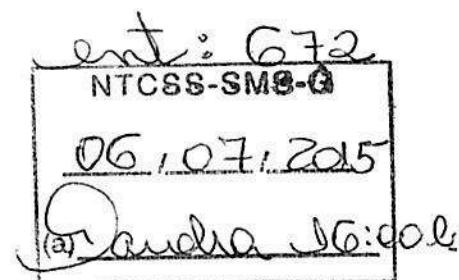 ent: 672
NTCSS-SMS-G
06/07/2015
(a) Sandra 16:00h